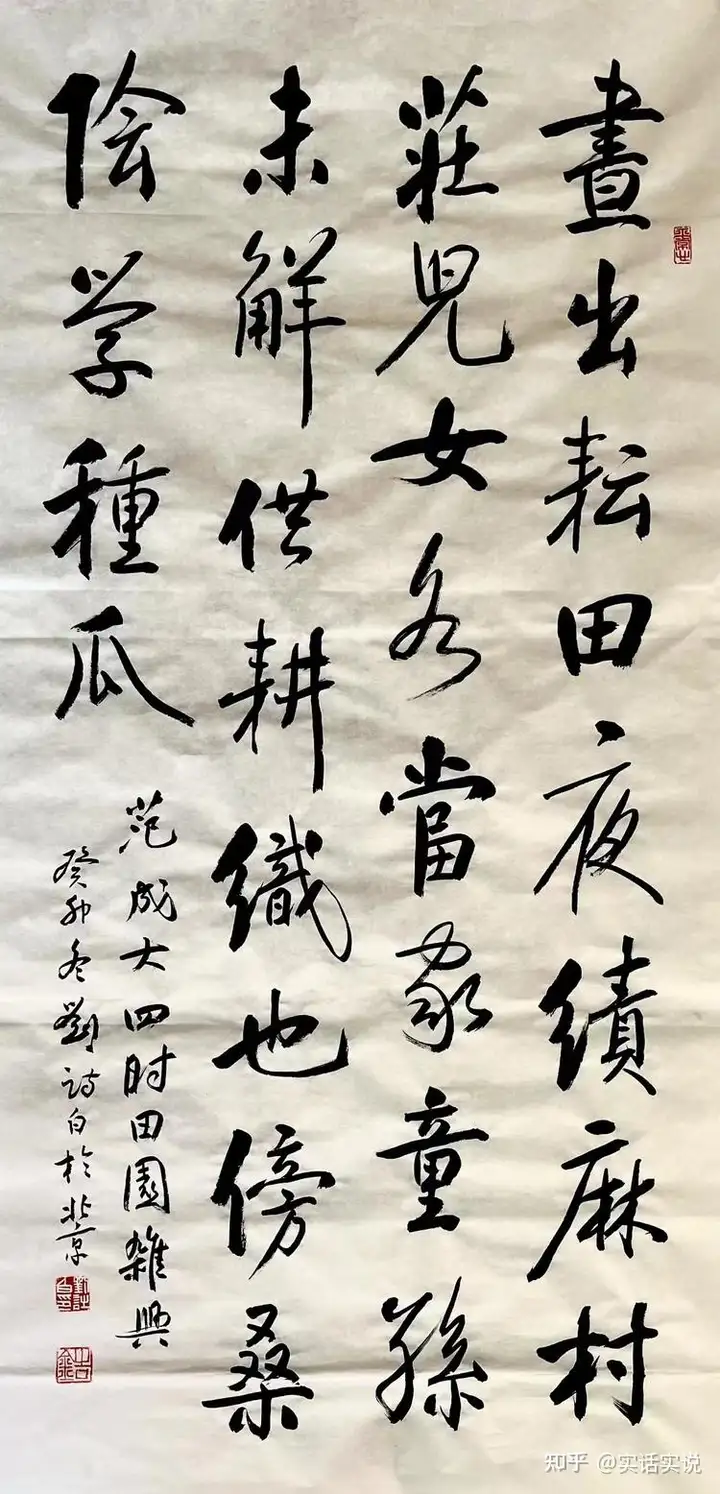 晝出耘田夜績麻村
莊児女各當家童孫
未解供耕織也傍桑
陰学種瓜
范成大四时田園雜興
癸卯冬劉詩白於北京
知乎 @实话实说